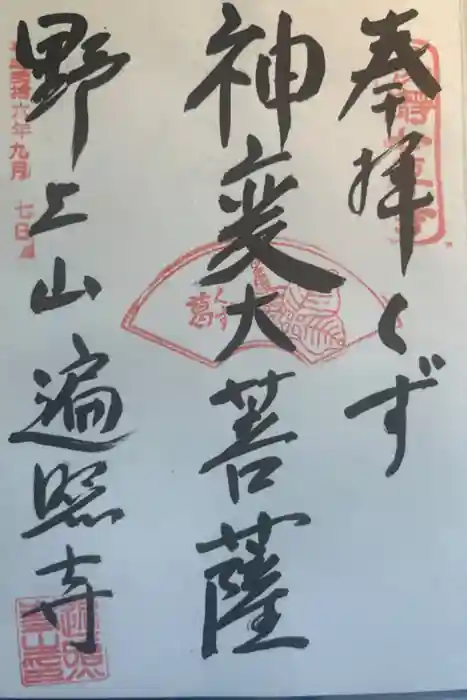 奉拝 くず
神変大菩薩
野上山 遍照寺
六年九月 七日
くず
葛